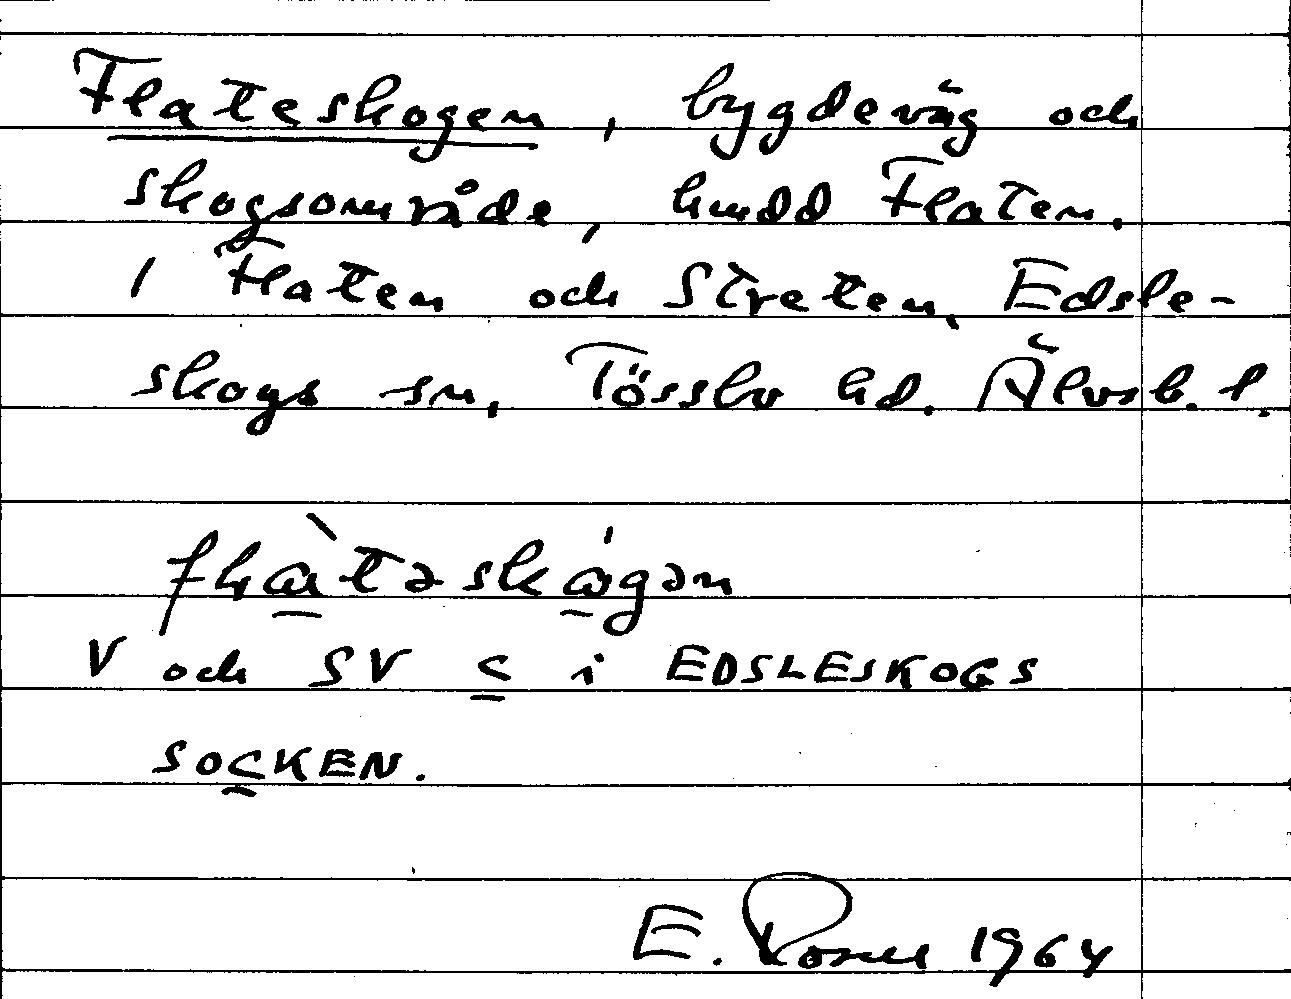 Flateskogen, bygdeväg och
skogsområde, hmdd Flaten.
I Flaten och Streten, Edsle-
skogs sn, Tösslv hd. Älvsb. l.
V och SV C i EDSLESKOGS
SOCKEN.
E. Rosell 1964